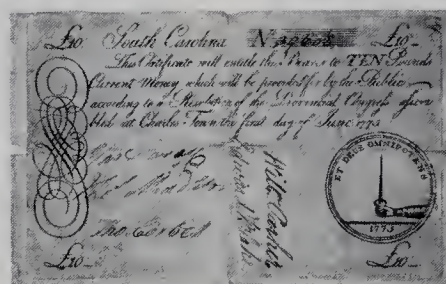 £10 South Carolina No £10
This Certificate will entitle the Bearer to TEN Pounds
Current Money which will be provided for by the Public
according to a Resolution of the Provincial Congress assem
bled at Charles-Town the first day of June 1775
ET DEUS OMNIPOTENS
1775
Tho Corbett
£10
£10